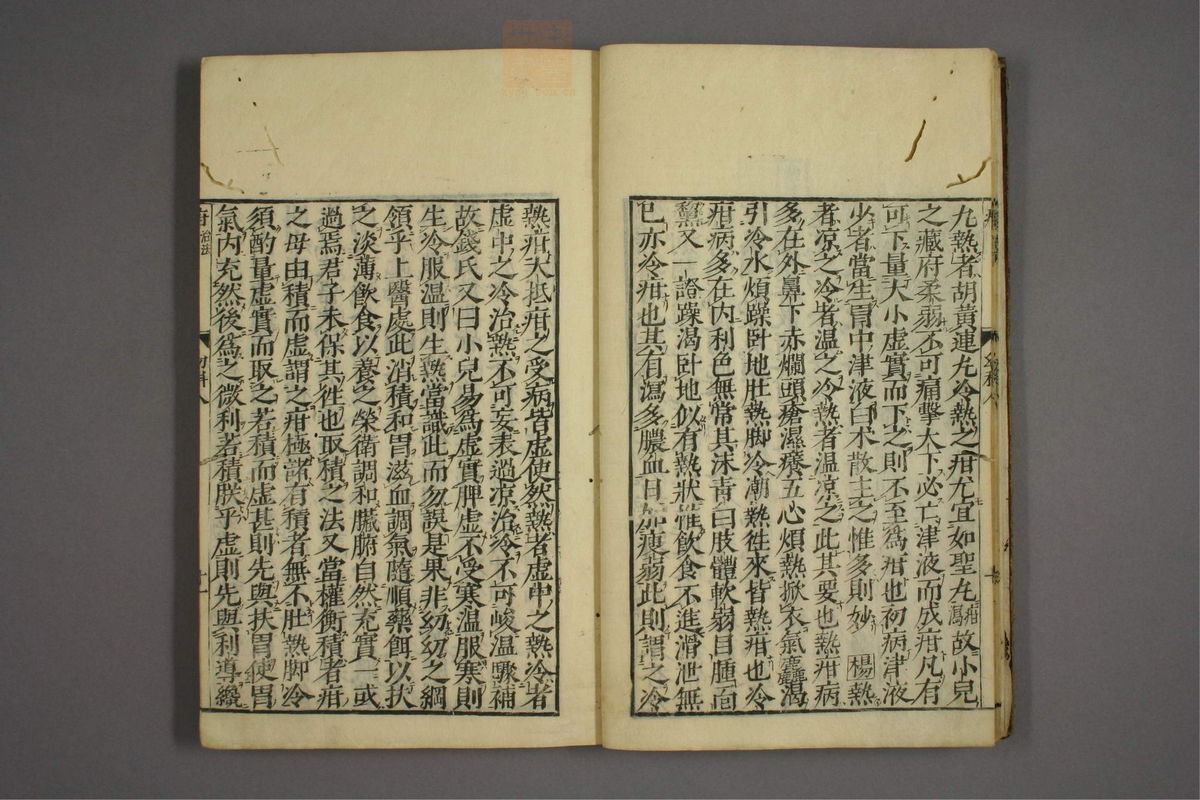 九熱者胡黄連丸冷熱之疳尤宜如聖丸疳瀉故小兒
之藏府柔弱不可痛擊大下必亡津液而成疳凡有
可下量大小虚實而下之則不至為疳也初病津液
少者當生胃中津液白朮散主之惟多則妙楊熱
者凉之冷者温之冷熱者温凉之此其要也熱疳病
多在外鼻下赤爛頭瘡濕癢五心煩熱掀衣氣麤渴
引冷水煩躁卧地肚熱脚冷潮熱徃來皆熱疳也冷
疳病多在内利色無常其沫青白肢體軟弱目腫面
黧又一證躁渴卧地似有熱狀惟飲食不進滑泄無
已亦冷疳也其有瀉多膿血日加瘦弱此則謂之冷
熱疳大抵疳之受病皆虚使然熱者虚中之熱冷者
虚中之冷治熱不可妄表過凉治冷不可峻温驟補
故錢氏又曰小兒易為虚實脾虚不受寒温服寒則
生冷服温則生熱當識此而勿誤是果非幼幼之綱
領乎上醫處此消積和胃滋血調氣隨順藥餌以扶
之淡薄飲食以養之榮衛調和臟腑自然充實一或
過焉君子未保其徃也取積之法又當權衡積者疳
之母由積而虚謂之疳極諸有積者無不肚熱脚冷
須酌量虚實而取之若積而虚甚則先與扶胃使胃
氣内充然後為之微利若積朕乎虚則先與利導纔
治法
幼科八
十一